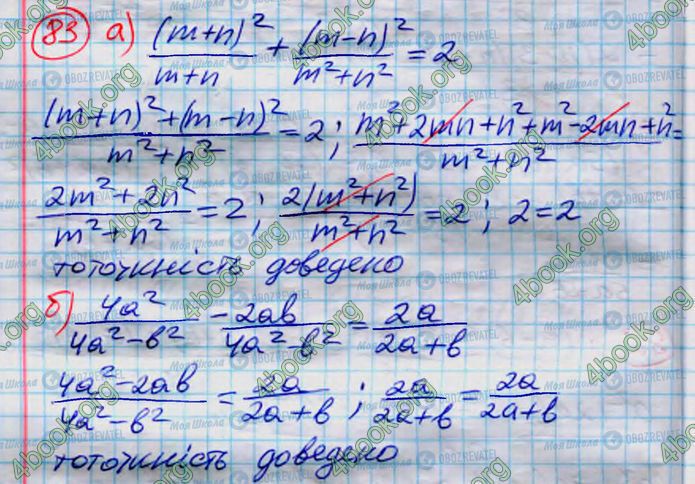 83 а) (m+n)²/m+n + (m-n)²/m²+n² = 2
(m+n)²+(m-n)²/m²+n² = 2; m²+2mn+n²+m²-2mn+n²/m²+n² =
2m²+2n²/m²+n² = 2; 2(m²+n²)/m²+n² = 2; 2=2
тотожність доведено
б) 4a²/4a²-b² - 2ab/4a²-b² = 2a/2a+b
4a²-2ab/4a²-b² = 2a/2a+b; 2a/2a+b = 2a/2a+b
тотожність доведено
4book.org
Моя Школа
OBOZREVATEL